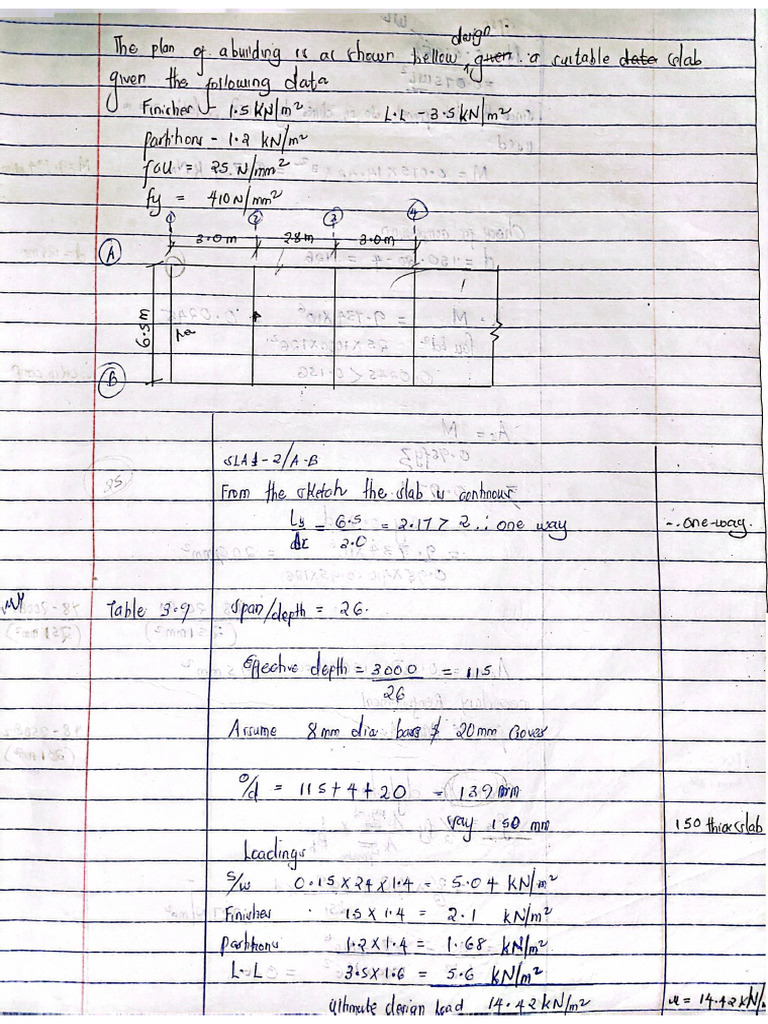 The plan of a building is as shown bellow, design a suitable slab
given the following data
Finishes - 1.5 kN/m² L.L - 3.5 kN/m²
partitions - 1.2 kN/m²
fcu = 25 N/mm²
fy = 410 N/mm²
1 2 3 4
3.0m 2.8m 3.0m
A
6.5m
B
SLAB 1-2/A-B
From the sketch the slab is continous
Ly/Lx = 6.5/3.0 = 2.17 > 2 ∴ one way
∴ one-way.
Table 3.9 Span/depth = 26.
Effective depth = 3000/26 = 115
Assume 8mm dia bars & 20mm Cover
o/d = 115 + 4 + 20 = 139 mm
say 150 mm
150 thick slab
Loadings
S/w 0.15 x 24 x 1.4 = 5.04 kN/m²
Finishes 1.5 x 1.4 = 2.1 kN/m²
Partitions 1.2 x 1.4 = 1.68 kN/m²
L.L 3.5 x 1.6 = 5.6 kN/m²
ultimate design load 14.42 kN/m²
n = 14.42 kN/